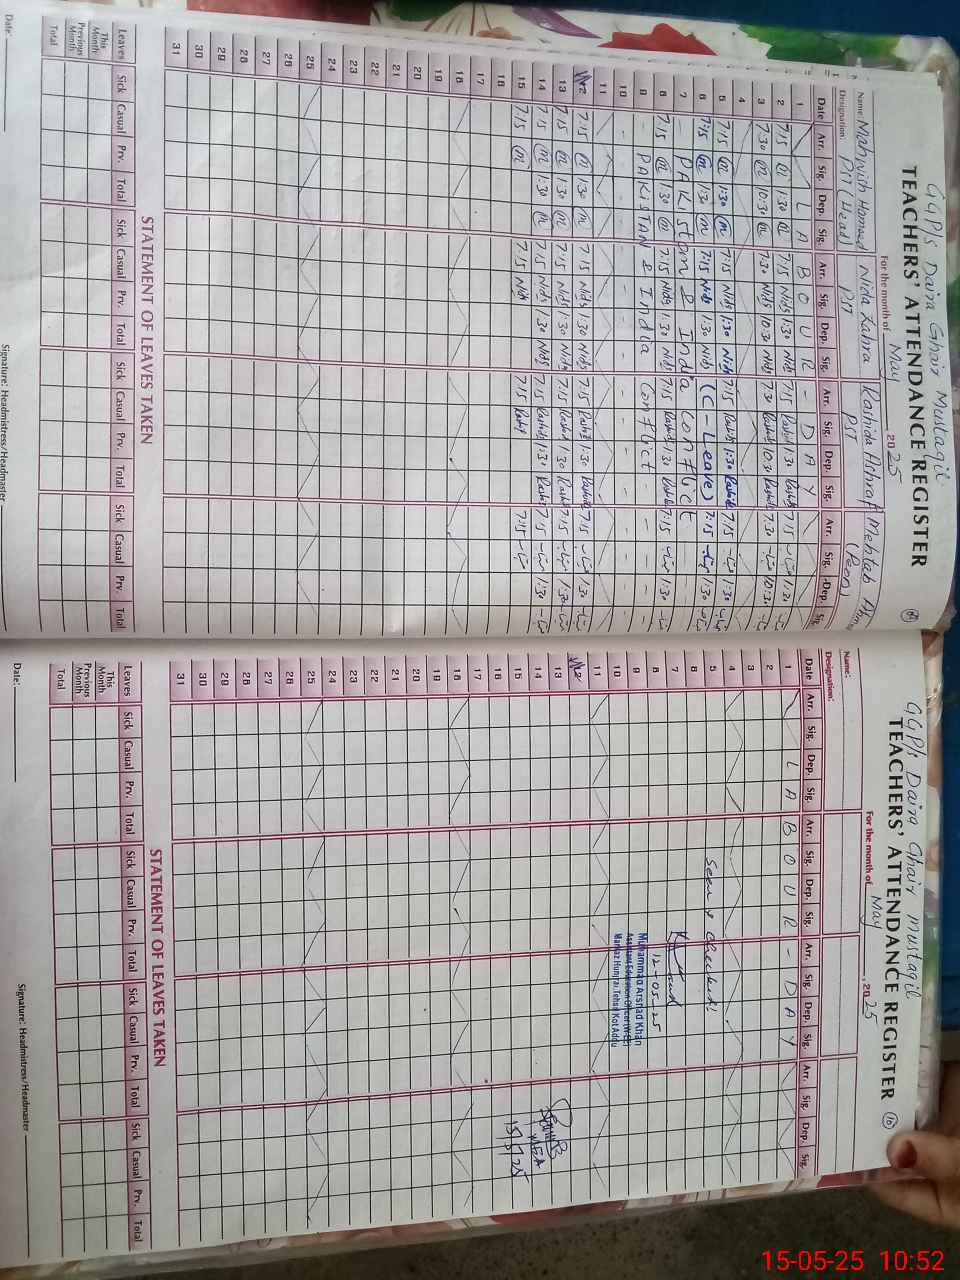 GGP/s Daira Ghair Mustaqil
TEACHERS' ATTENDANCE REGISTER
For the month of May 2025
Name: Mahwish Hameed Nida Zahra Rashida Ashraf Mehtab Ahmad
Designation: PST (Head) PST PST (Peon)
Date Arr. Sig. Dep. Sig. Arr. Sig. Dep. Sig. Arr. Sig. Dep. Sig. Arr. Sig. Dep. Sig.
1 L A B O U R - D A Y
2 7:15 m 1:30 m 7:15 Nida 1:30 Nida 7:15 Rashida 1:30 Rashida 7:15 1:30
3 7:30 m 10:30 m 7:30 Nida 10:30 Nida 7:30 Rashida 10:30 Rashida 7:30 10:30
4
5 7:15 m 1:30 m 7:15 Nida 1:30 Nida 7:15 Rashida 1:30 Rashida 7:15 1:30
6 7:15 m 1:30 m 7:15 Nida 1:30 Nida (C - Leave) 7:15 1:30
7 - PAKistan & India Conflict
8 7:15 m 1:30 m 7:15 Nida 1:30 Nida 7:15 Rashida 1:30 Rashida 7:15 1:30
9 - PAKiTAN & India Conflict - - - -
10 - - - - - - - - -
11
12 7:15 m 1:30 m 7:15 Nida 1:30 Nida 7:15 Rashida 1:30 Rashida 7:15 1:30
13 7:15 m 1:30 m 7:15 Nida 1:30 Nida 7:15 Rashida 1:30 Rashida 7:15 1:30
14 7:15 m 1:30 m 7:15 Nida 1:30 Nida 7:15 Rashida 1:30 Rashida 7:15 1:30
15 7:15 m 7:15 Nida 7:15 Rashida 7:15
16
17
18
19
20
21
22
23
24
25
26
27
28
29
30
31
STATEMENT OF LEAVES TAKEN
Leaves Sick Casual Prv. Total Sick Casual Prv. Total Sick Casual Prv. Total Sick Casual Prv. Total
This Month
Previous Month
Total
Date: Signature: Headmistress/Headmaster
GGP/s Daira Ghair Mustaqil
TEACHERS' ATTENDANCE REGISTER
10
For the month of May 2025
Name:
Designation:
Date Arr. Sig. Dep. Sig. Arr. Sig. Dep. Sig. Arr. Sig. Dep. Sig. Arr. Sig. Dep. Sig.
1 L A B O U R - D A Y
2
3
4
5 Seen & Checked!
6
7
8 12-05-25
9 Muhammad Arshad Khan
Assistant Education Officer (W-EE)
10 Markaz Hunjrai, Tehsil Kot Addu
11
12
13
14 MEA
15 15/5/25
16
17
18
19
20
21
22
23
24
25
26
27
28
29
30
31
STATEMENT OF LEAVES TAKEN
Leaves Sick Casual Prv. Total Sick Casual Prv. Total Sick Casual Prv. Total Sick Casual Prv. Total
This Month
Previous Month
Total
Date: Signature: Headmistress/Headmaster
15-05-25 10:52